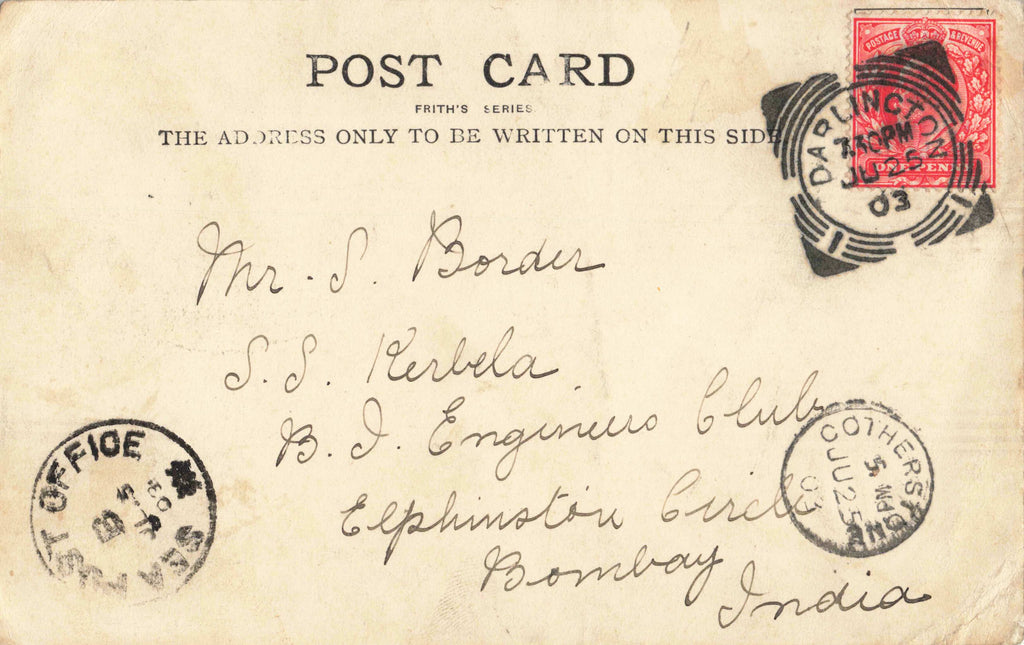 POST CARD
FRITH'S SERIES
THE ADDRESS ONLY TO BE WRITTEN ON THIS SIDE
POSTAGE & REVENUE
ONE PENNY
DARLINGTON
7.30PM
JU 25
03
Mr. S. Border
S. S. Kerbela
B. I. Engineers Club
Elphinston Circle
Bombay
India
COTHERSTONE
5 PM
JU 25
03
SEA POST OFFICE
B